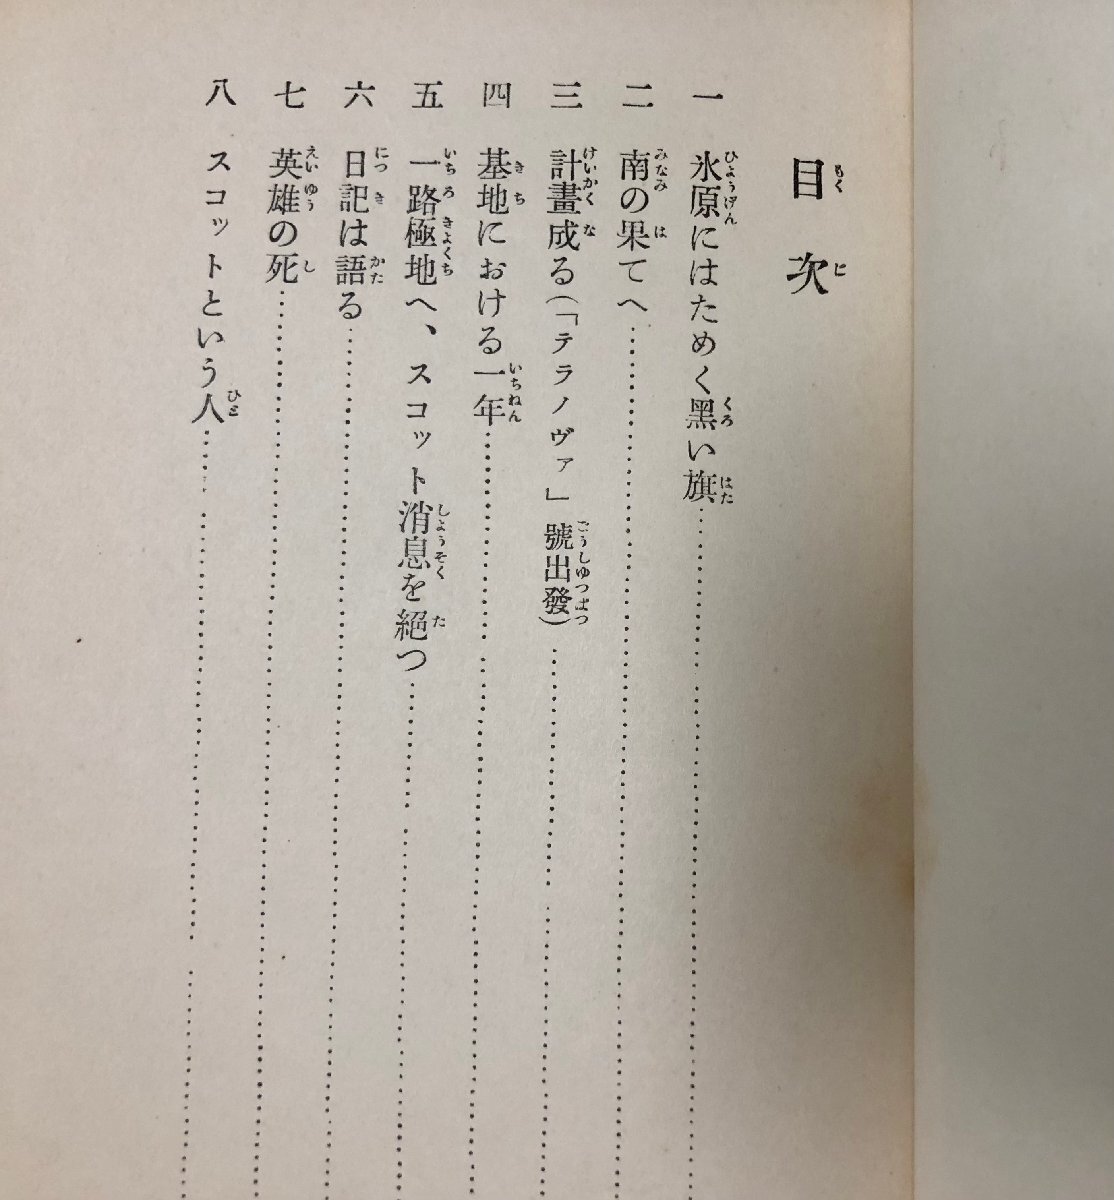 目次
一 氷原にはためく黑い旗
二 南の果てへ
三 計畫成る(「テラノヴァ」號出發)
四 基地における一年
五 一路極地へ、スコット消息を絕つ
六 日記は語る
七 英雄の死
八 スコットという人